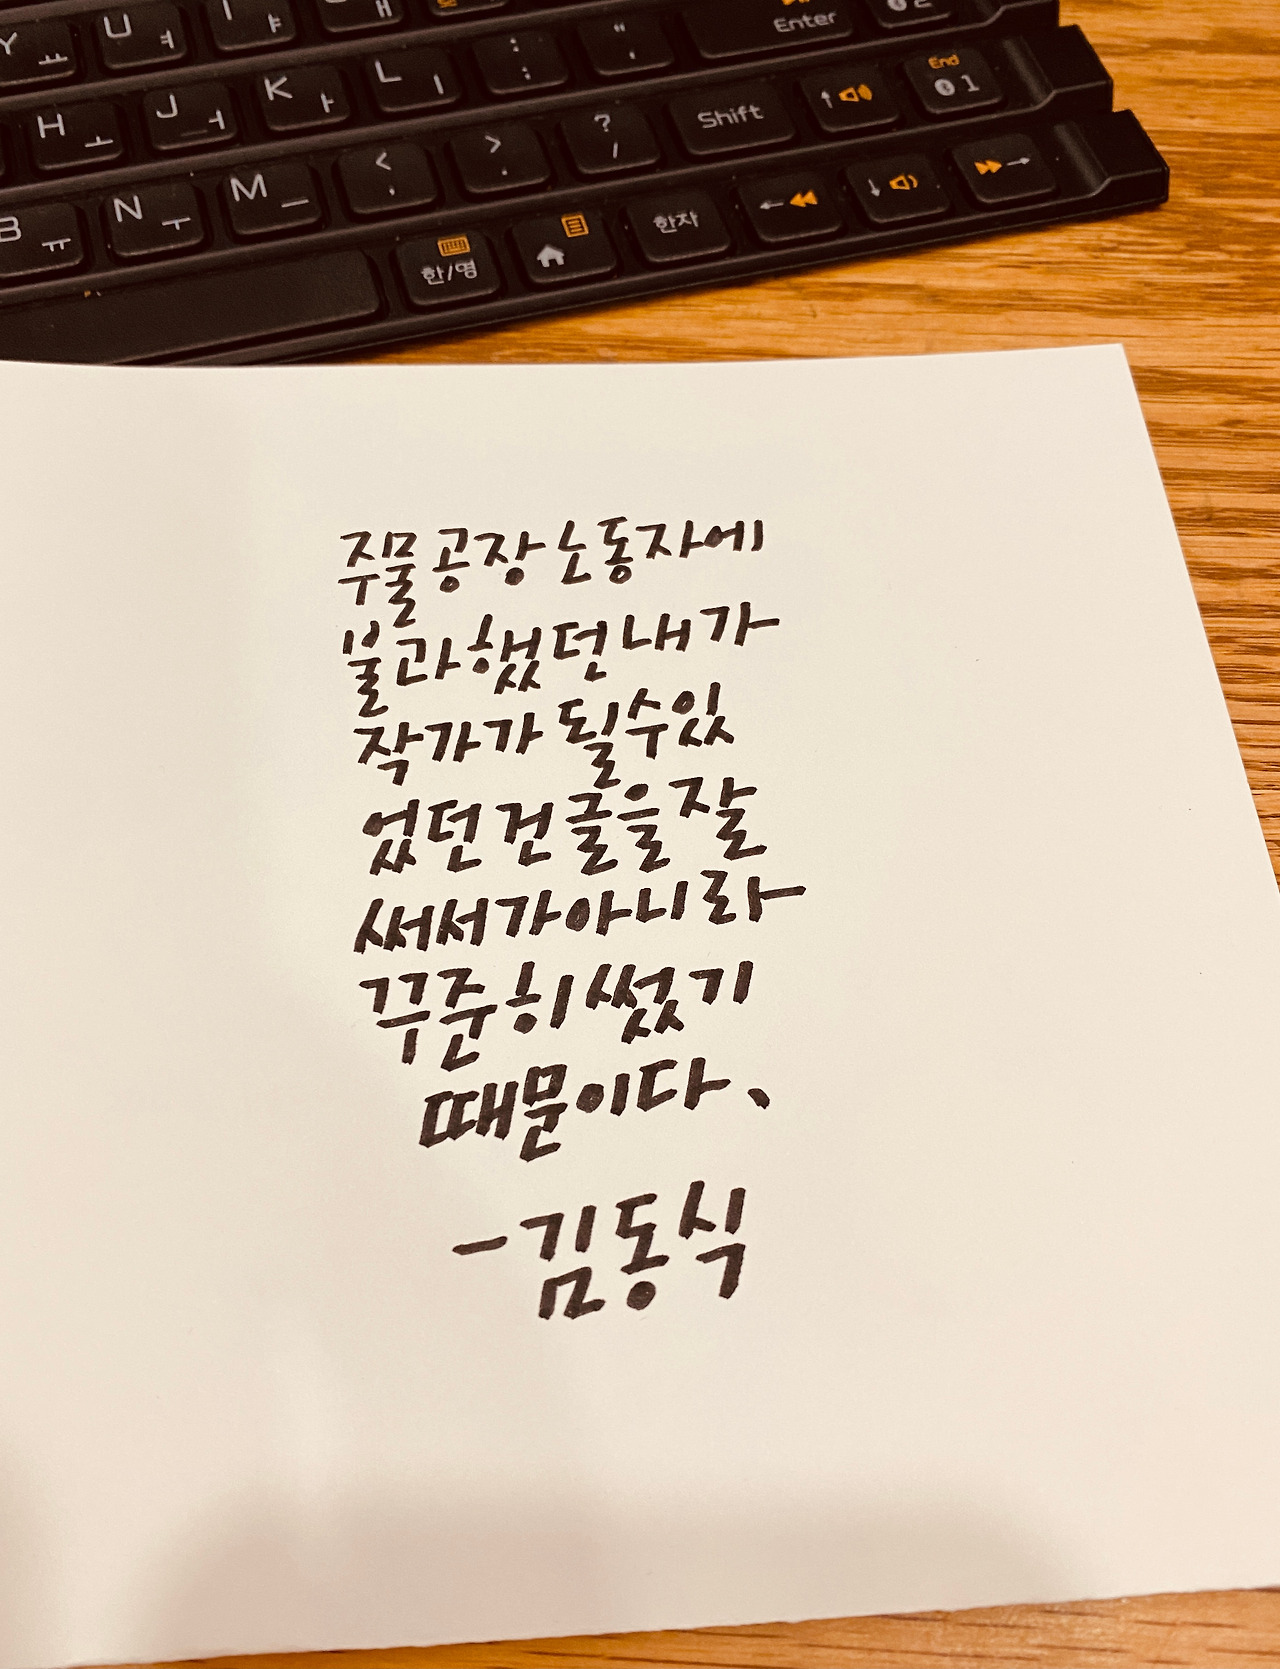 Y ㅛ U ㅕ I ㅑ ㅐ Enter
H ㅗ J ㅓ K ㅏ L ㅣ : ; " ' Shift ↑ End 1
B ㅠ N ㅜ M ㅡ < , > . ? /
한/영 한자 ← ↓ →
주물공장 노동자에
불과했던 내가
작가가 될수있
었던건 글을 잘
써서가아니라
꾸준히 썼기
때문이다.
-김동식